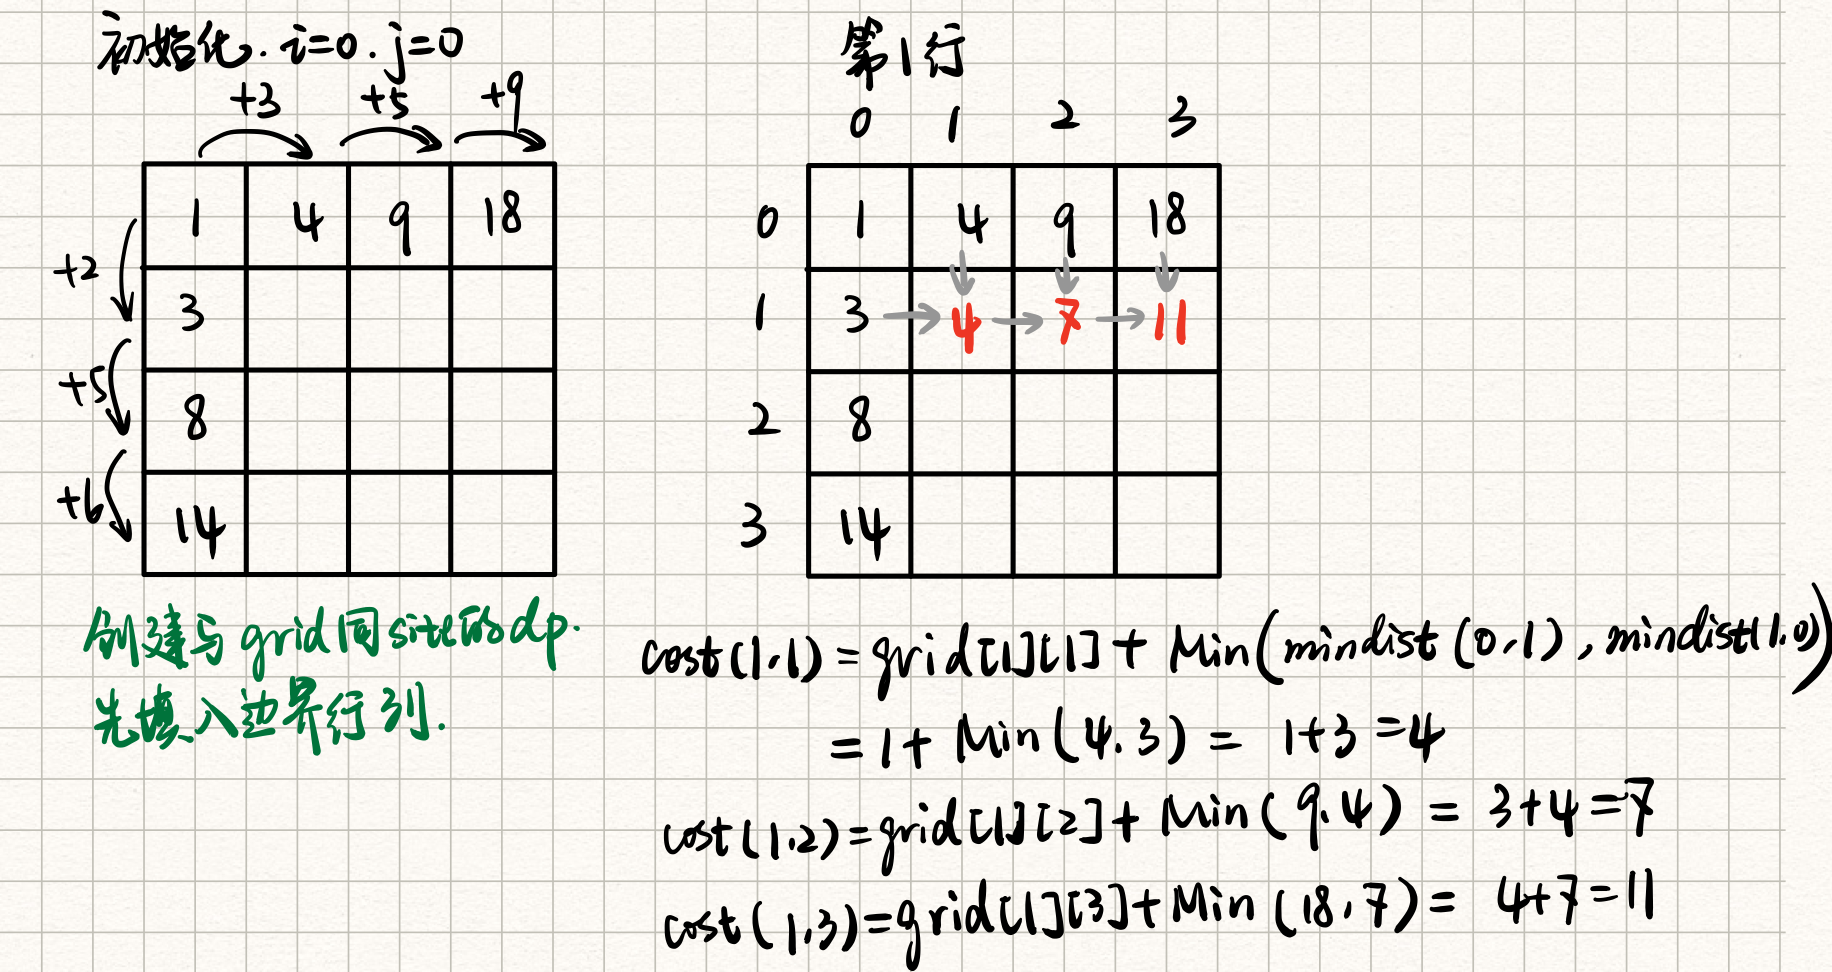 初始化. i=0. j=0
+3 +5 +9
1 4 9 18
+2
3
+5
8
+6
14
创建与grid同site的dp.
先填入边界行列.
第1行
0 1 2 3
0 1 4 9 18
1 3 4 7 11
2 8
3 14
cost(1,1) = grid[1][1] + Min(mindist(0,1), mindist(1,0))
= 1 + Min(4,3) = 1+3=4
cost(1,2)=grid[1][2]+Min(9,4) = 3+4=7
cost(1,3)=grid[1][3]+Min(18,7) = 4+7=11